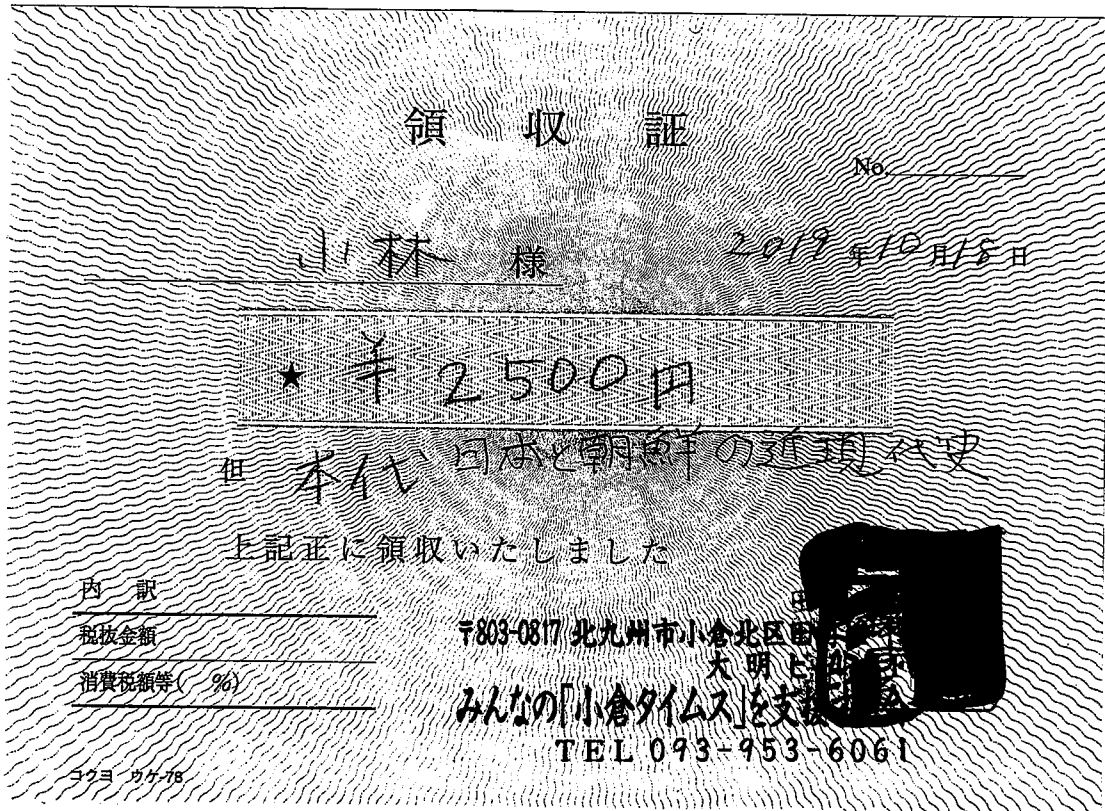 領収証
No.
小林 様
2019年10月18日
★ ¥2500円
但 本代 日本と朝鮮の近現代史
上記正に領収いたしました
内訳
税抜金額
消費税額等( %)
〒803-0817 北九州市小倉北区田
大明ビル
みんなの「小倉タイムス」を支援
TEL 093-953-6061
コクヨ ウケ-78